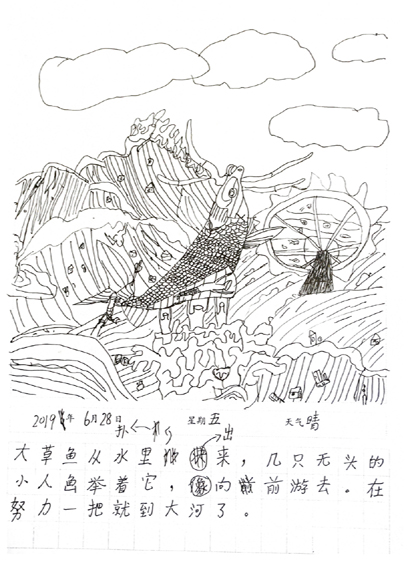 2019年 6月28日 星期五 天气晴
扑 出
大草鱼从水里来，几只无头的
小人鱼举着它，向前游去。在
努力一把就到大河了。